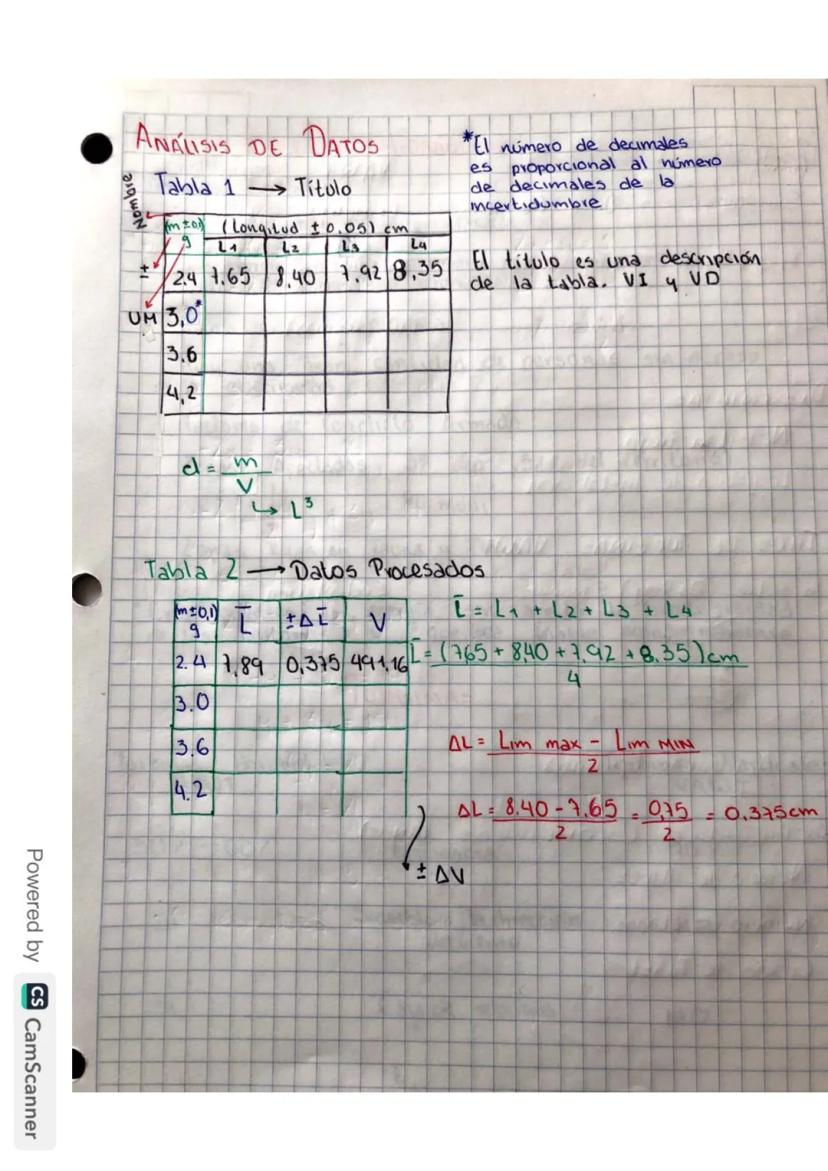 ANÁLISIS DE DATOS
*El número de decimales
es proporcional al número
de decimales de la
incertidumbre
Tabla 1 → Título
Nombre
(m±0,1) g (Longitud ± 0.05) cm
L1 L2 L3 L4
± 2.4 7.65 8,40 7.92 8,35
El título es una descripción
de la tabla. VI y VD
UM 3,0*
3.6
4,2
d = m / V
↳ L³
Tabla 2 → Datos Procesados
(m±0,1) g L̄ ±ΔL̄ V
2.4 7,89 0,375 491,16
3.0
3.6
4.2
L̄ = L1 + L2 + L3 + L4
L̄ = (7,65 + 8,40 + 7,92 + 8.35)cm / 4
ΔL = Lim max - Lim MIN / 2
ΔL = 8.40 - 7.65 / 2 = 0,75 / 2 = 0.375cm
± ΔV
Powered by CS CamScanner